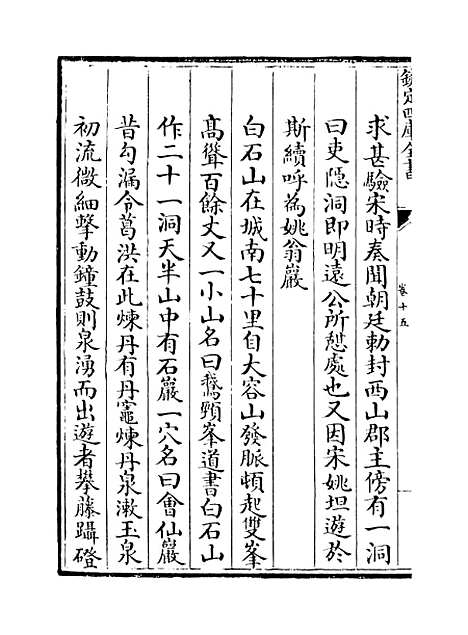 欽定四庫全書
卷十五
求甚驗宋時奏聞朝廷勅封西山郡主傍有一洞
曰吏隱洞即明遠公所憩處也又因宋姚坦遊於
斯續呼為姚翁巖
白石山在城南七十里自大容山發脈頓起雙峯
髙聳百餘丈又一小山名曰鵞頸峯道書白石山
作二十一洞天半山中有石巖一穴名曰會仙巖
昔勾漏令葛洪在此煉丹有丹竈煉丹泉漱玉泉
初流微細擊動鐘鼓則泉湧而出遊者攀藤躡磴